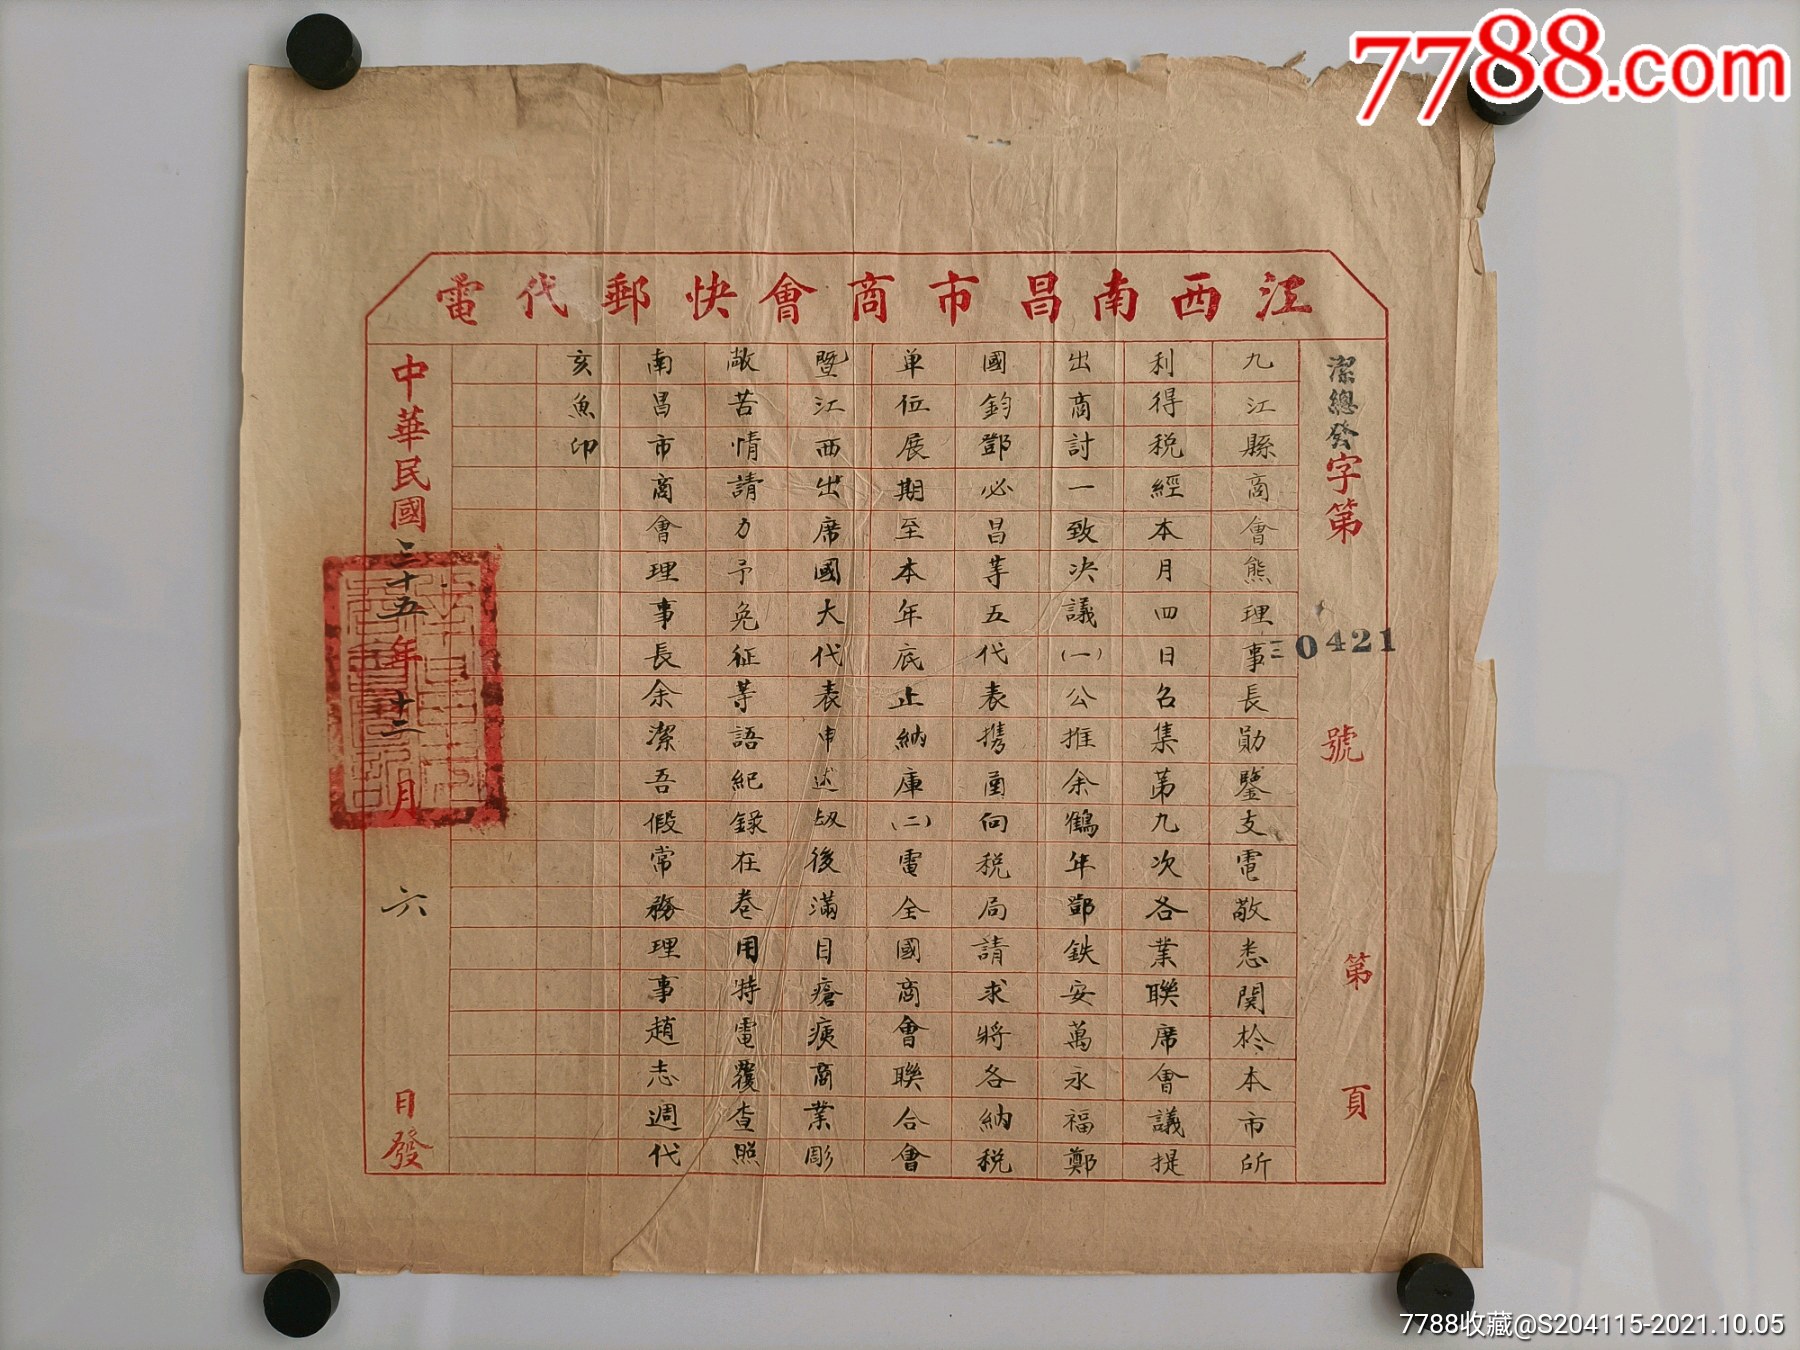 7788.com
江西南昌市商會快郵代電
潔總發字第三0421號 第 頁
九江縣商會熊理事長勛鑒支電敬悉関於本市所
利得税經本月四日召集第九次各業聯席會議提
出商討一致决議(一)公推余鶴年鄧鉄安萬永福鄭
國鈞鄧必昌等五代表携函向税局請求將各納税
单位展期至本年底止納庫(二)電全國商會聯合會
暨江西出席國大代表申述刼後滿目瘡痍商業彫
敝苦情請力予免征等語紀録在卷用特電覆查照
南昌市商會理事長余潔吾假常務理事趙志週代
亥魚印
中華民國三十五年十二月六日發
7788收藏@S204115-2021.10.05